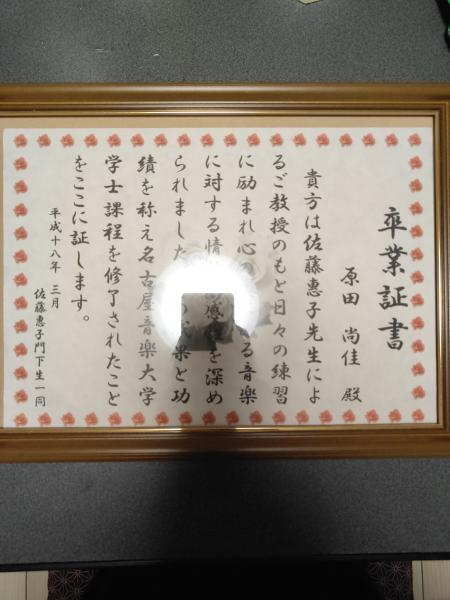 卒業証書
原田 尚佳 殿
貴方は佐藤惠子先生によ
るご教授のもと日々の練習
に励まれ心の る音楽
に対する情 を深め
られました 楽と功
績を称え名古屋音楽大学
学士課程を修了されたこと
をここに証します。
平成十八年 三月
佐藤惠子門下生一同